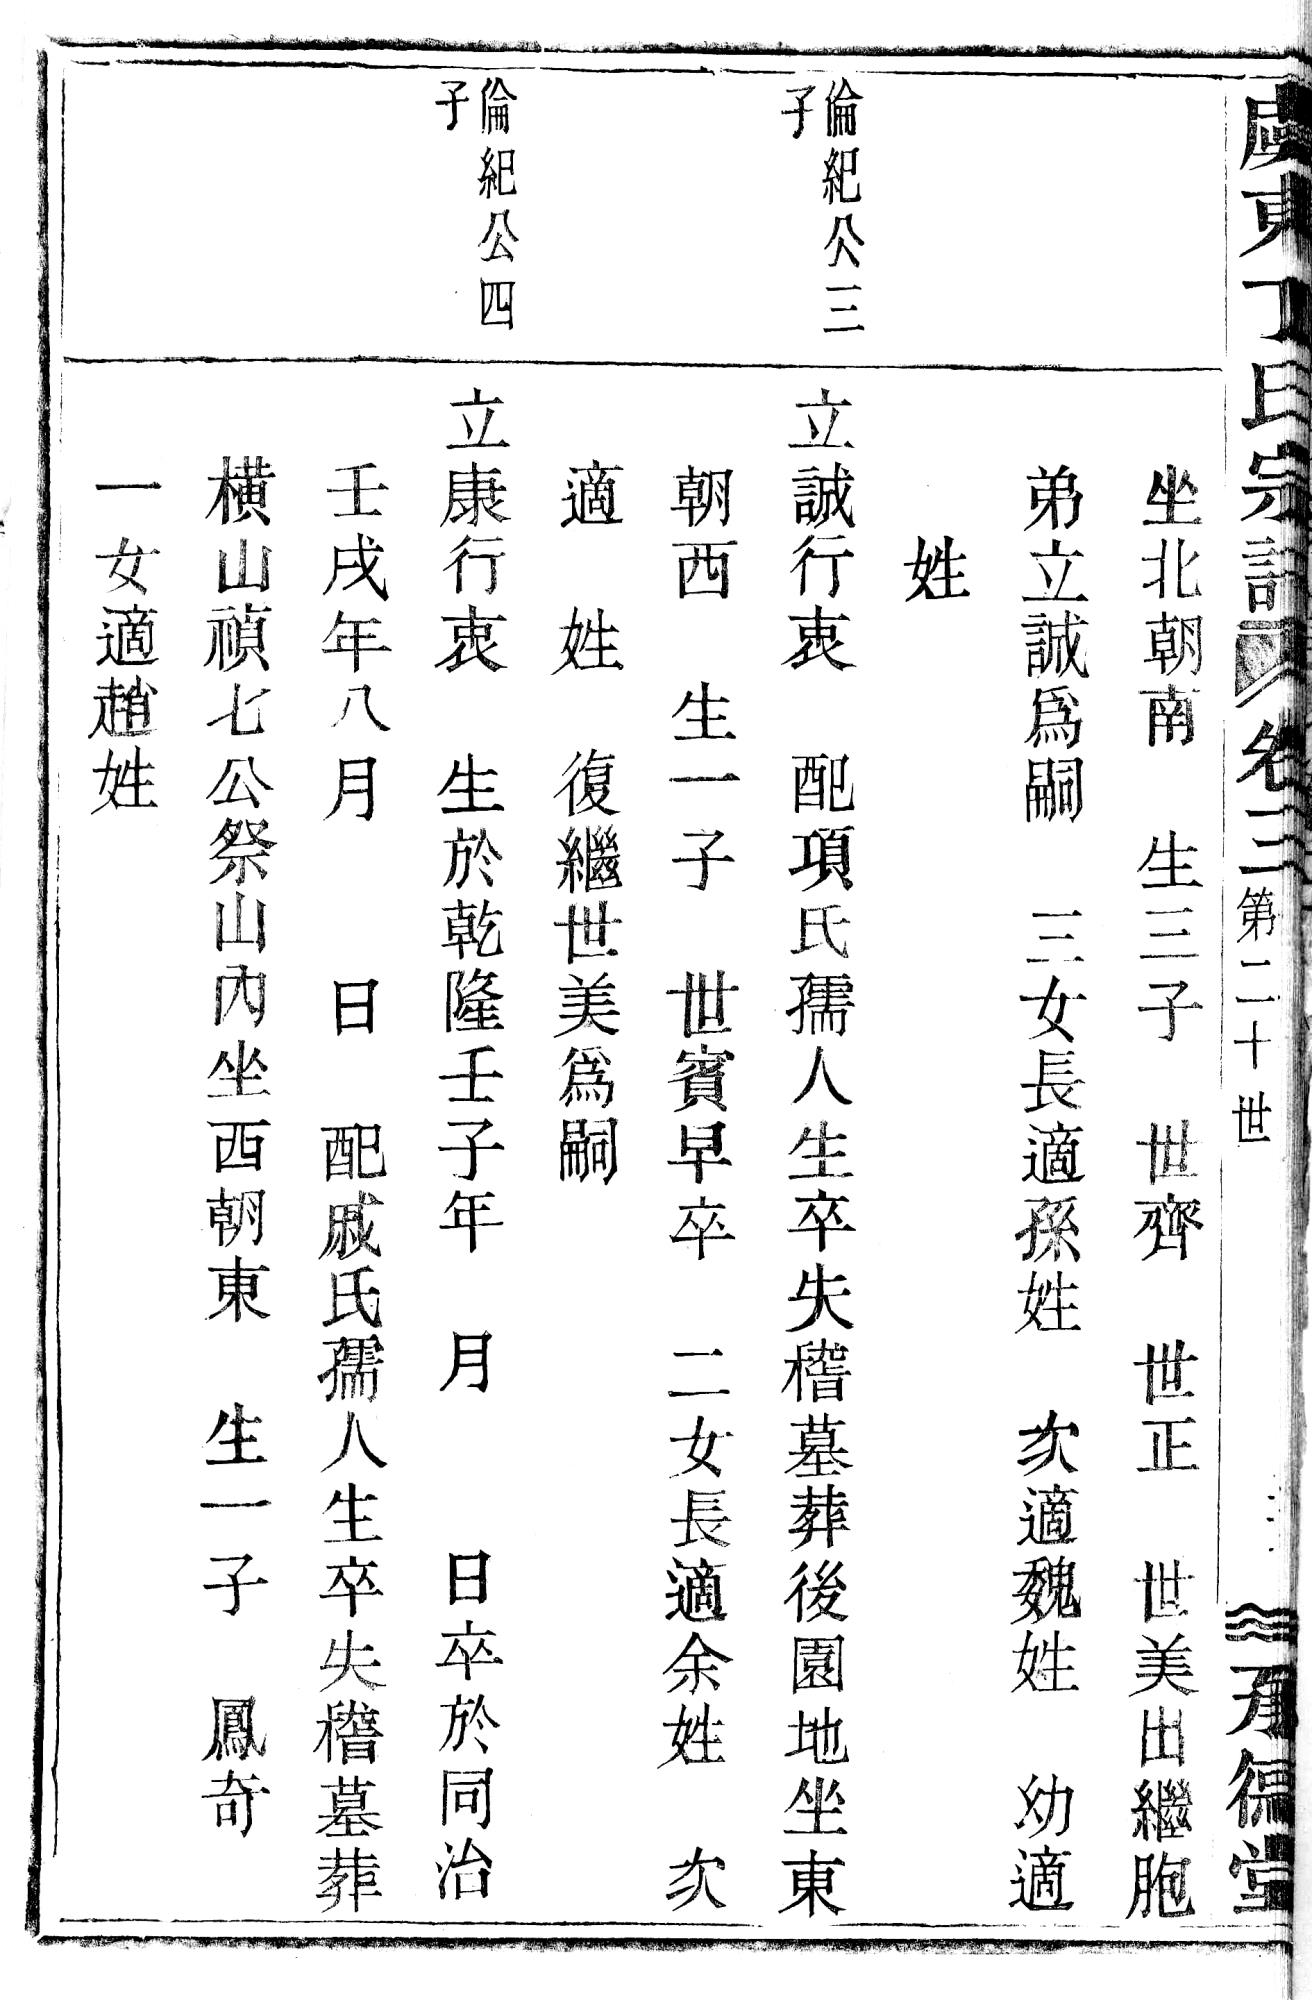 虞東丁氏宗譜 卷三 第二十世 承德堂
坐北朝南 生三子 世齊 世正 世美出繼胞
弟立誠爲嗣 三女長適孫姓 次適魏姓 幼適
姓
倫紀公三
子
立誠行衷 配項氏孺人生卒失稽墓葬後園地坐東
朝西 生一子 世賓早卒 二女長適余姓 次
適 姓 復繼世美爲嗣
倫紀公四
子
立康行衷 生於乾隆壬子年 月 日卒於同治
壬戌年八月 日 配戚氏孺人生卒失稽墓葬
横山禎七公祭山內坐西朝東 生一子 鳳奇
一女適趙姓